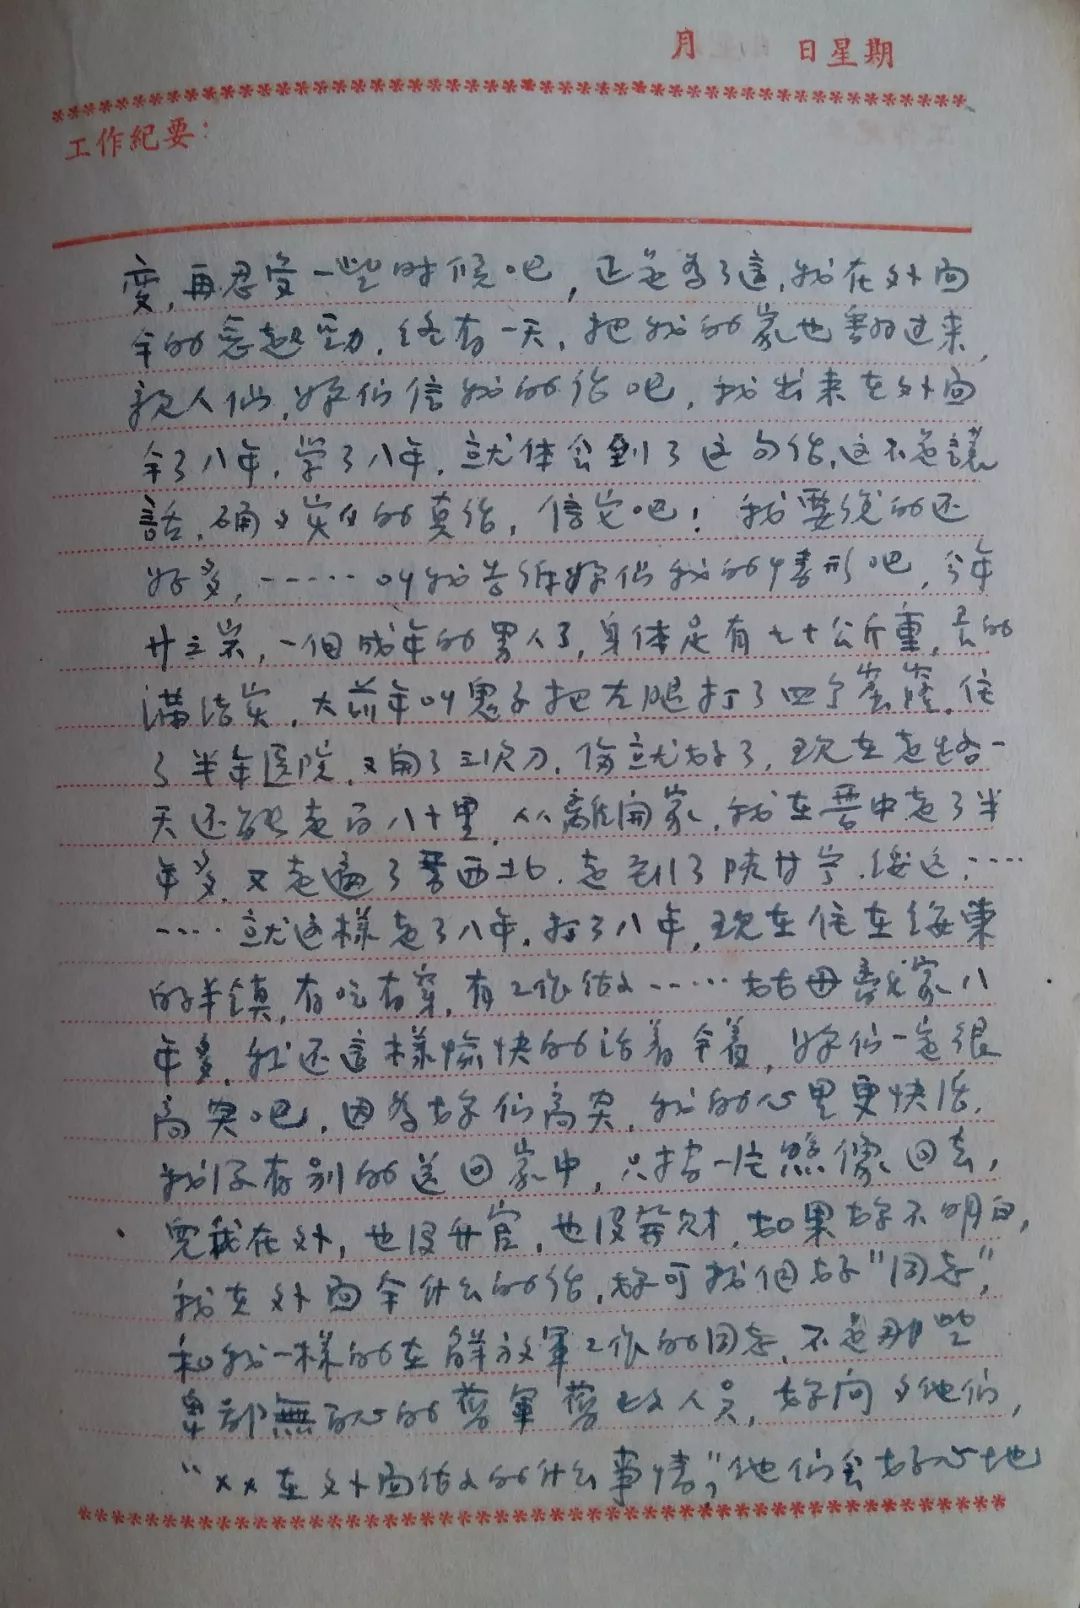 月 日星期
工作紀要：
变，再忍受一些时候吧，正是为了這，我在外面
干的意起劲，终有一天，把我的家也翻过来，
亲人们，妳们信我的话吧，我出来在外面
干了八年，学了八年，就体会到了这句话，这不是謊
話，确 实的真话，信它吧！我要说的还
好多，……叫我告诉妳们我的情形吧，今年
廿三岁，一個成年的男人了，身体足有七十公斤重，
满结实，大前年叫鬼子把左腿打了四个窟窿，住
了半年医院，又開了三次刀，伤就好了，现在走路一
天还能走百八十里，从離開家，我在晋中走了半
年多，又走遍了晋西北，走到了陕甘宁、绥远，……
……就这样走了八年，打了八年，现在住在绥東
的半鎮，有吃有穿，有工作做，……妳母 家八
年多，我还這樣愉快的活着干着，妳们一定很
高兴吧，因为妳们高兴，我的心里更快活，
我没有别的送回家中，只捎一片照像回去，
完我在外，也没升官，也没發财，如果妳不明白，
我在外面干什么的话，妳可找個好“同志”，
和我一样的在解放軍工作的同志，不是那些
卑鄙無耻的蒋軍蒋政人员，妳问 他们，
“××在外面做 的什么事情”，他们会好心地